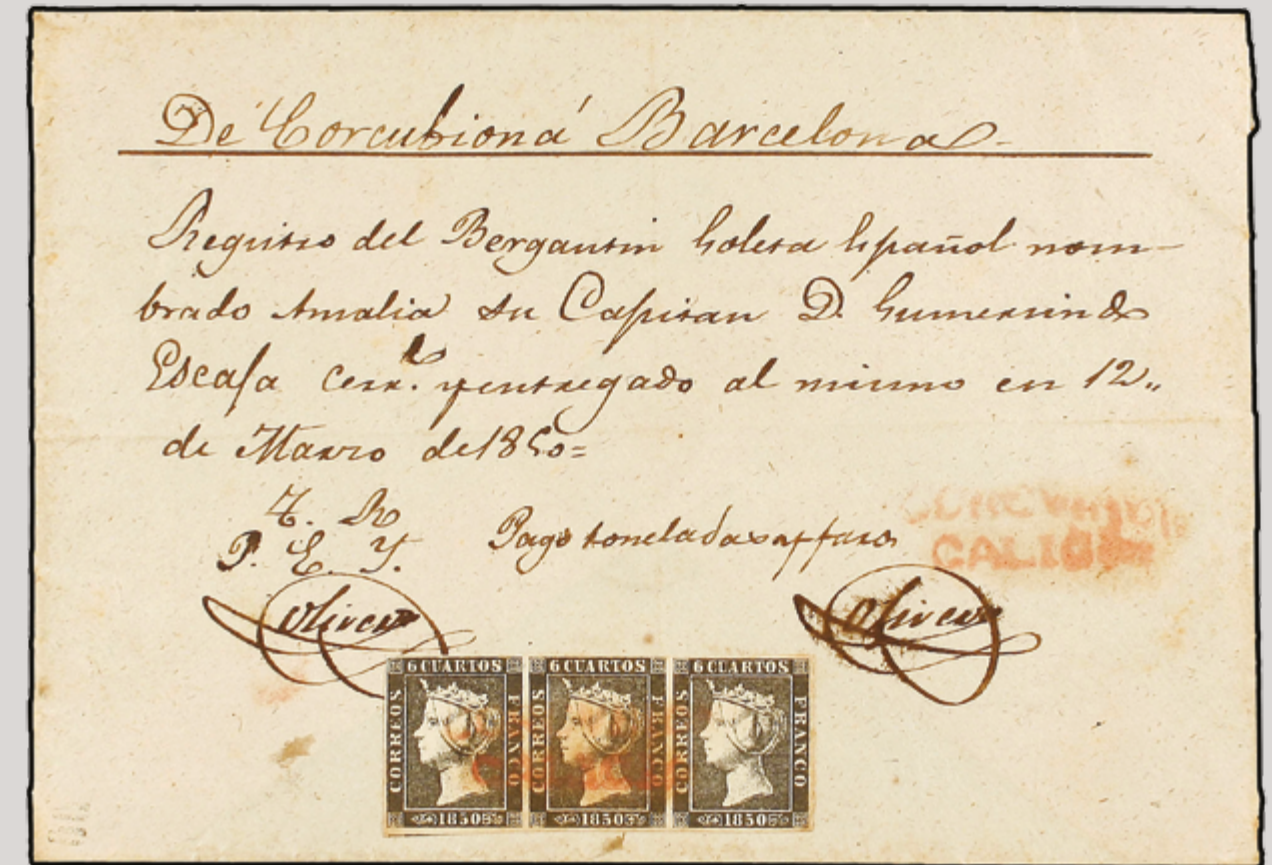 De Corcubion á Barcelona
Registro del Bergantin Goleta Español nom-
brado Amalia su Capitan D. Gumersindo
Escasa Cerr.do y entregado al mismo en 12,,
de Marzo de 1850=
P. E. Y.
Pago toneladas y faros
Olivera
Olivera
GALICIA
6 CUARTOS
CORREOS
FRANCO
1850
6 CUARTOS
CORREOS
FRANCO
1850
6 CUARTOS
CORREOS
FRANCO
1850